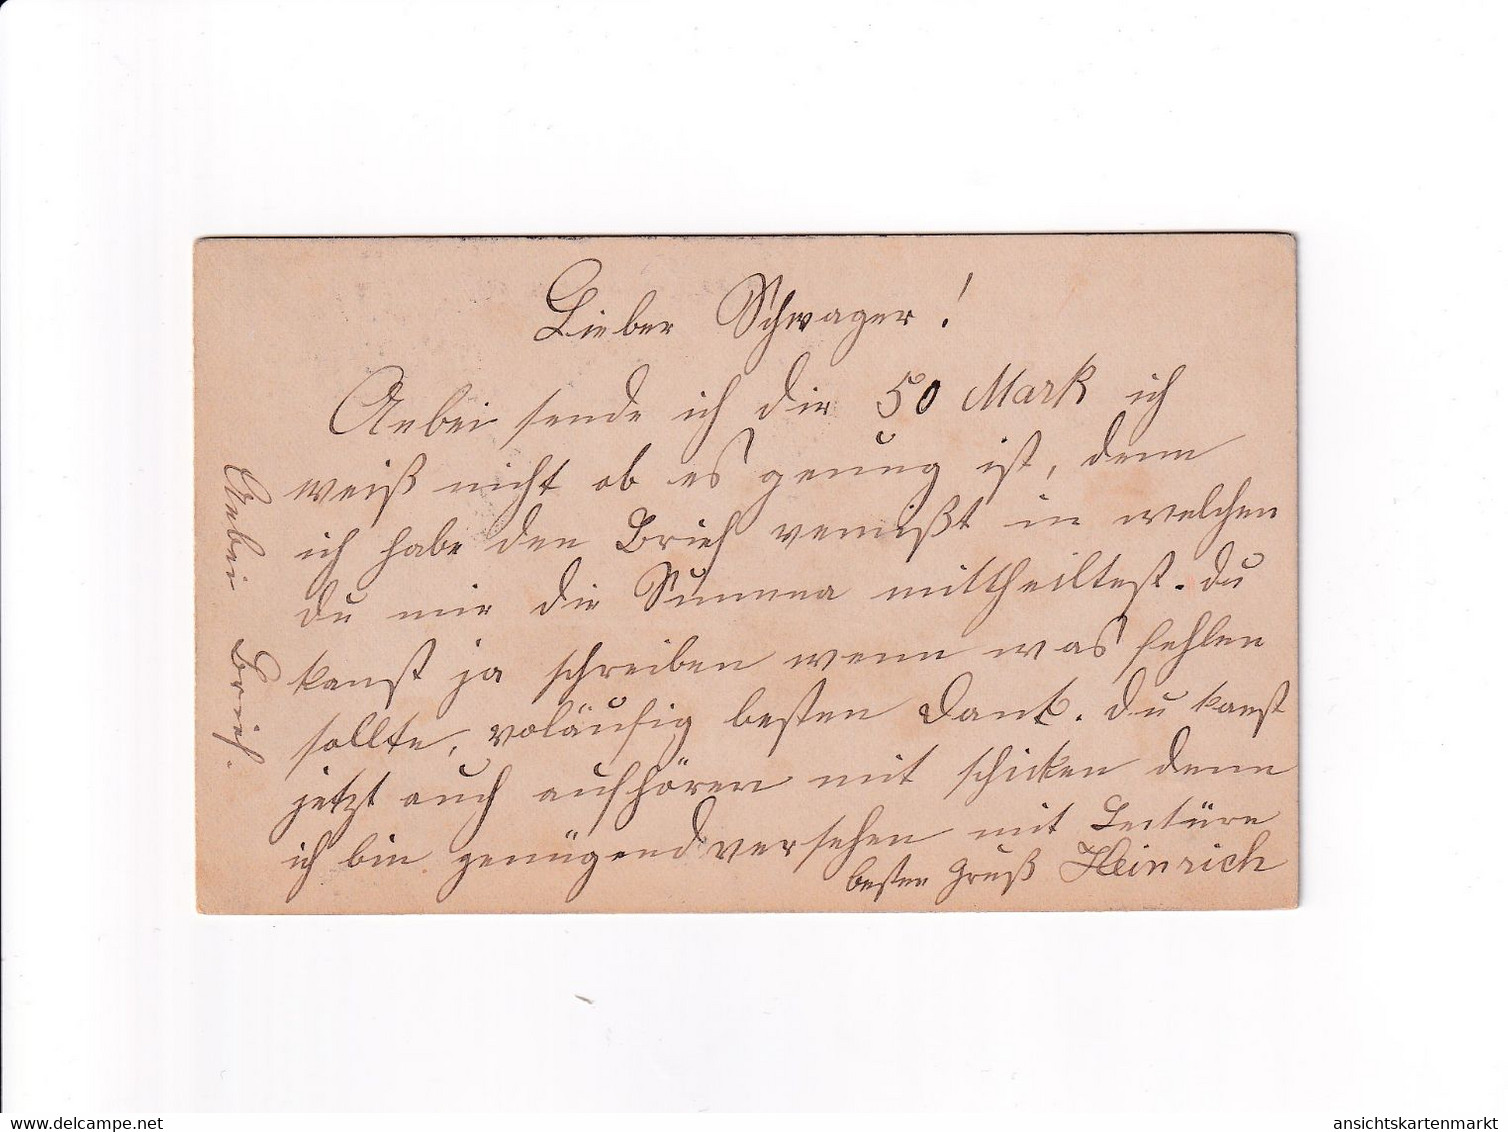 Lieber Schwager!
Anbei sende ich dir 50 Mark ich
weiß nicht ob es genug ist, denn
ich habe den Brief vermißt in welchen
du mir die Summa mittheiltest. Du
kanst ja schreiben wenn was fehlen
sollte, voläufig besten Dank. Du kanst
jetzt auch aufhören mit schicken denn
ich bin genügend versehen mit Lectüre
besten Gruß Heinrich
Anbei Brief.
www.delcampe.net
ansichtskartenmarkt